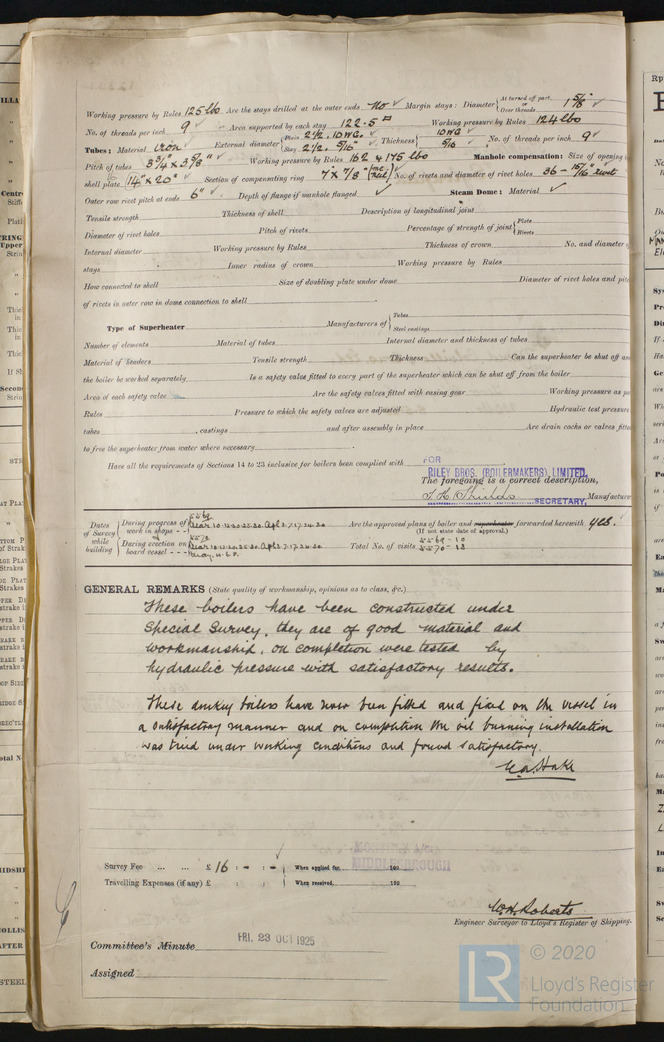 Working pressure by Rules 125 lbs Are the stays drilled at the outer ends No Margin stays: Diameter { At turned off part, or Over threads 1 5/8"
No. of threads per inch 9 Area supported by each stay 122.5 □" Working pressure by Rules 124 lbs
Tubes: Material Iron External diameter { Plain 2 1/2. 10WG. Stay 2 1/2. 5/16" Thickness { 10WG 5/16 No. of threads per inch 9
Pitch of tubes 3 3/4" x 3 5/8" Working pressure by Rules 162 & 175 lbs Manhole compensation: Size of opening
shell plate 14" x 20" Section of compensating ring 7" x 7/8" No. of rivets and diameter of rivet holes 36 - 15/16" rivet
Outer row rivet pitch at ends 6" Depth of flange if manhole flanged Steam Dome: Material
Tensile strength Thickness of shell Description of longitudinal joint
Diameter of rivet holes Pitch of rivets Percentage of strength of joint { Plate Rivets
Internal diameter Working pressure by Rules Thickness of crown No. and diameter
stays Inner radius of crown Working pressure by Rules
How connected to shell Size of doubling plate under dome Diameter of rivet holes and pitch
of rivets in outer row in dome connection to shell
Type of Superheater Manufacturers of { Tubes Steel castings
Number of elements Material of tubes Internal diameter and thickness of tubes
Material of headers Tensile strength Thickness Can the superheater be shut off and
the boiler be worked separately Is a safety valve fitted to every part of the superheater which can be shut off from the boiler
Area of each safety valve Are the safety valves fitted with easing gear Working pressure as per
Rules Pressure to which the safety valves are adjusted Hydraulic test pressure
tubes , castings and after assembly in place Are drain cocks or valves fitted
to free the superheater from water where necessary
Have all the requirements of Sections 14 to 23 inclusive for boilers been complied with
FOR
RILEY BROS. (BOILERMAKERS), LIMITED.
The foregoing is a correct description,
SECRETARY, Manufacturer
Dates of Survey while building { During progress of work in shops - - 5569 Mar 10.12.20.25.30. Apl 3.7.17.24.30
During erection on board vessel - - - 5570 Mar 10.12.20.25.30. Apl 3.7.17.24.30 May. 4.6.8.
Are the approved plans of boiler and superheater forwarded herewith yes.
(If not state date of approval.)
Total No. of visits 5569 - 10
5570 - 13
GENERAL REMARKS (State quality of workmanship, opinions as to class, &c.)
These boilers have been constructed under
Special Survey, they are of good material and
workmanship, on completion were tested by
hydraulic pressure with satisfactory results.
These donkey boilers have now been fitted and fixed on the vessel in
a satisfactory manner and on completion the oil burning installation
was tried under working conditions and found satisfactory.
Survey Fee ... ... £ 16 : - : - When applied for, 192
MONTHLY A/C.
MIDDLESBROUGH
Travelling Expenses (if any) £ : : When received, 192
W.H. Roberts
Engineer Surveyor to Lloyd's Register of Shipping.
Committee's Minute FRI. 23 OCT 1925
Assigned
LR © 2020
Lloyd's Register
Foundation